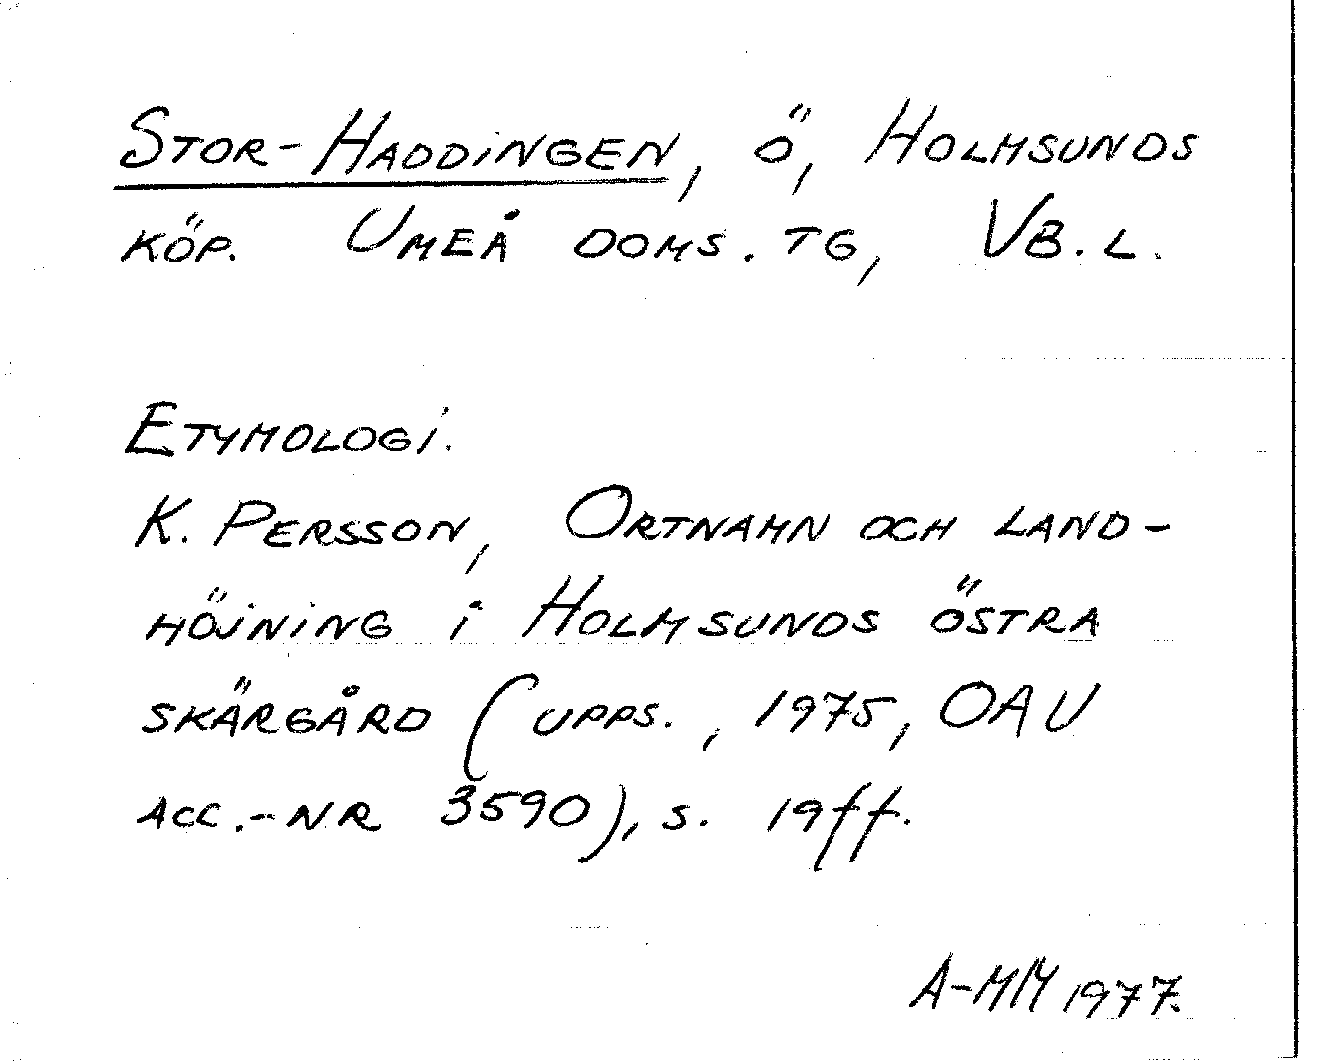 STOR-HADDINGEN, Ö, HOLMSUNDS
KÖP. UMEÅ DOMS. TG, VB. L.
ETYMOLOGI.
K. PERSSON, ORTNAMN OCH LAND-
HÖJNING I HOLMSUNDS ÖSTRA
SKÄRGÅRD (UPPS., 1975, OAU
ACC.-NR 3590), S. 19ff.
A-MM 1977.